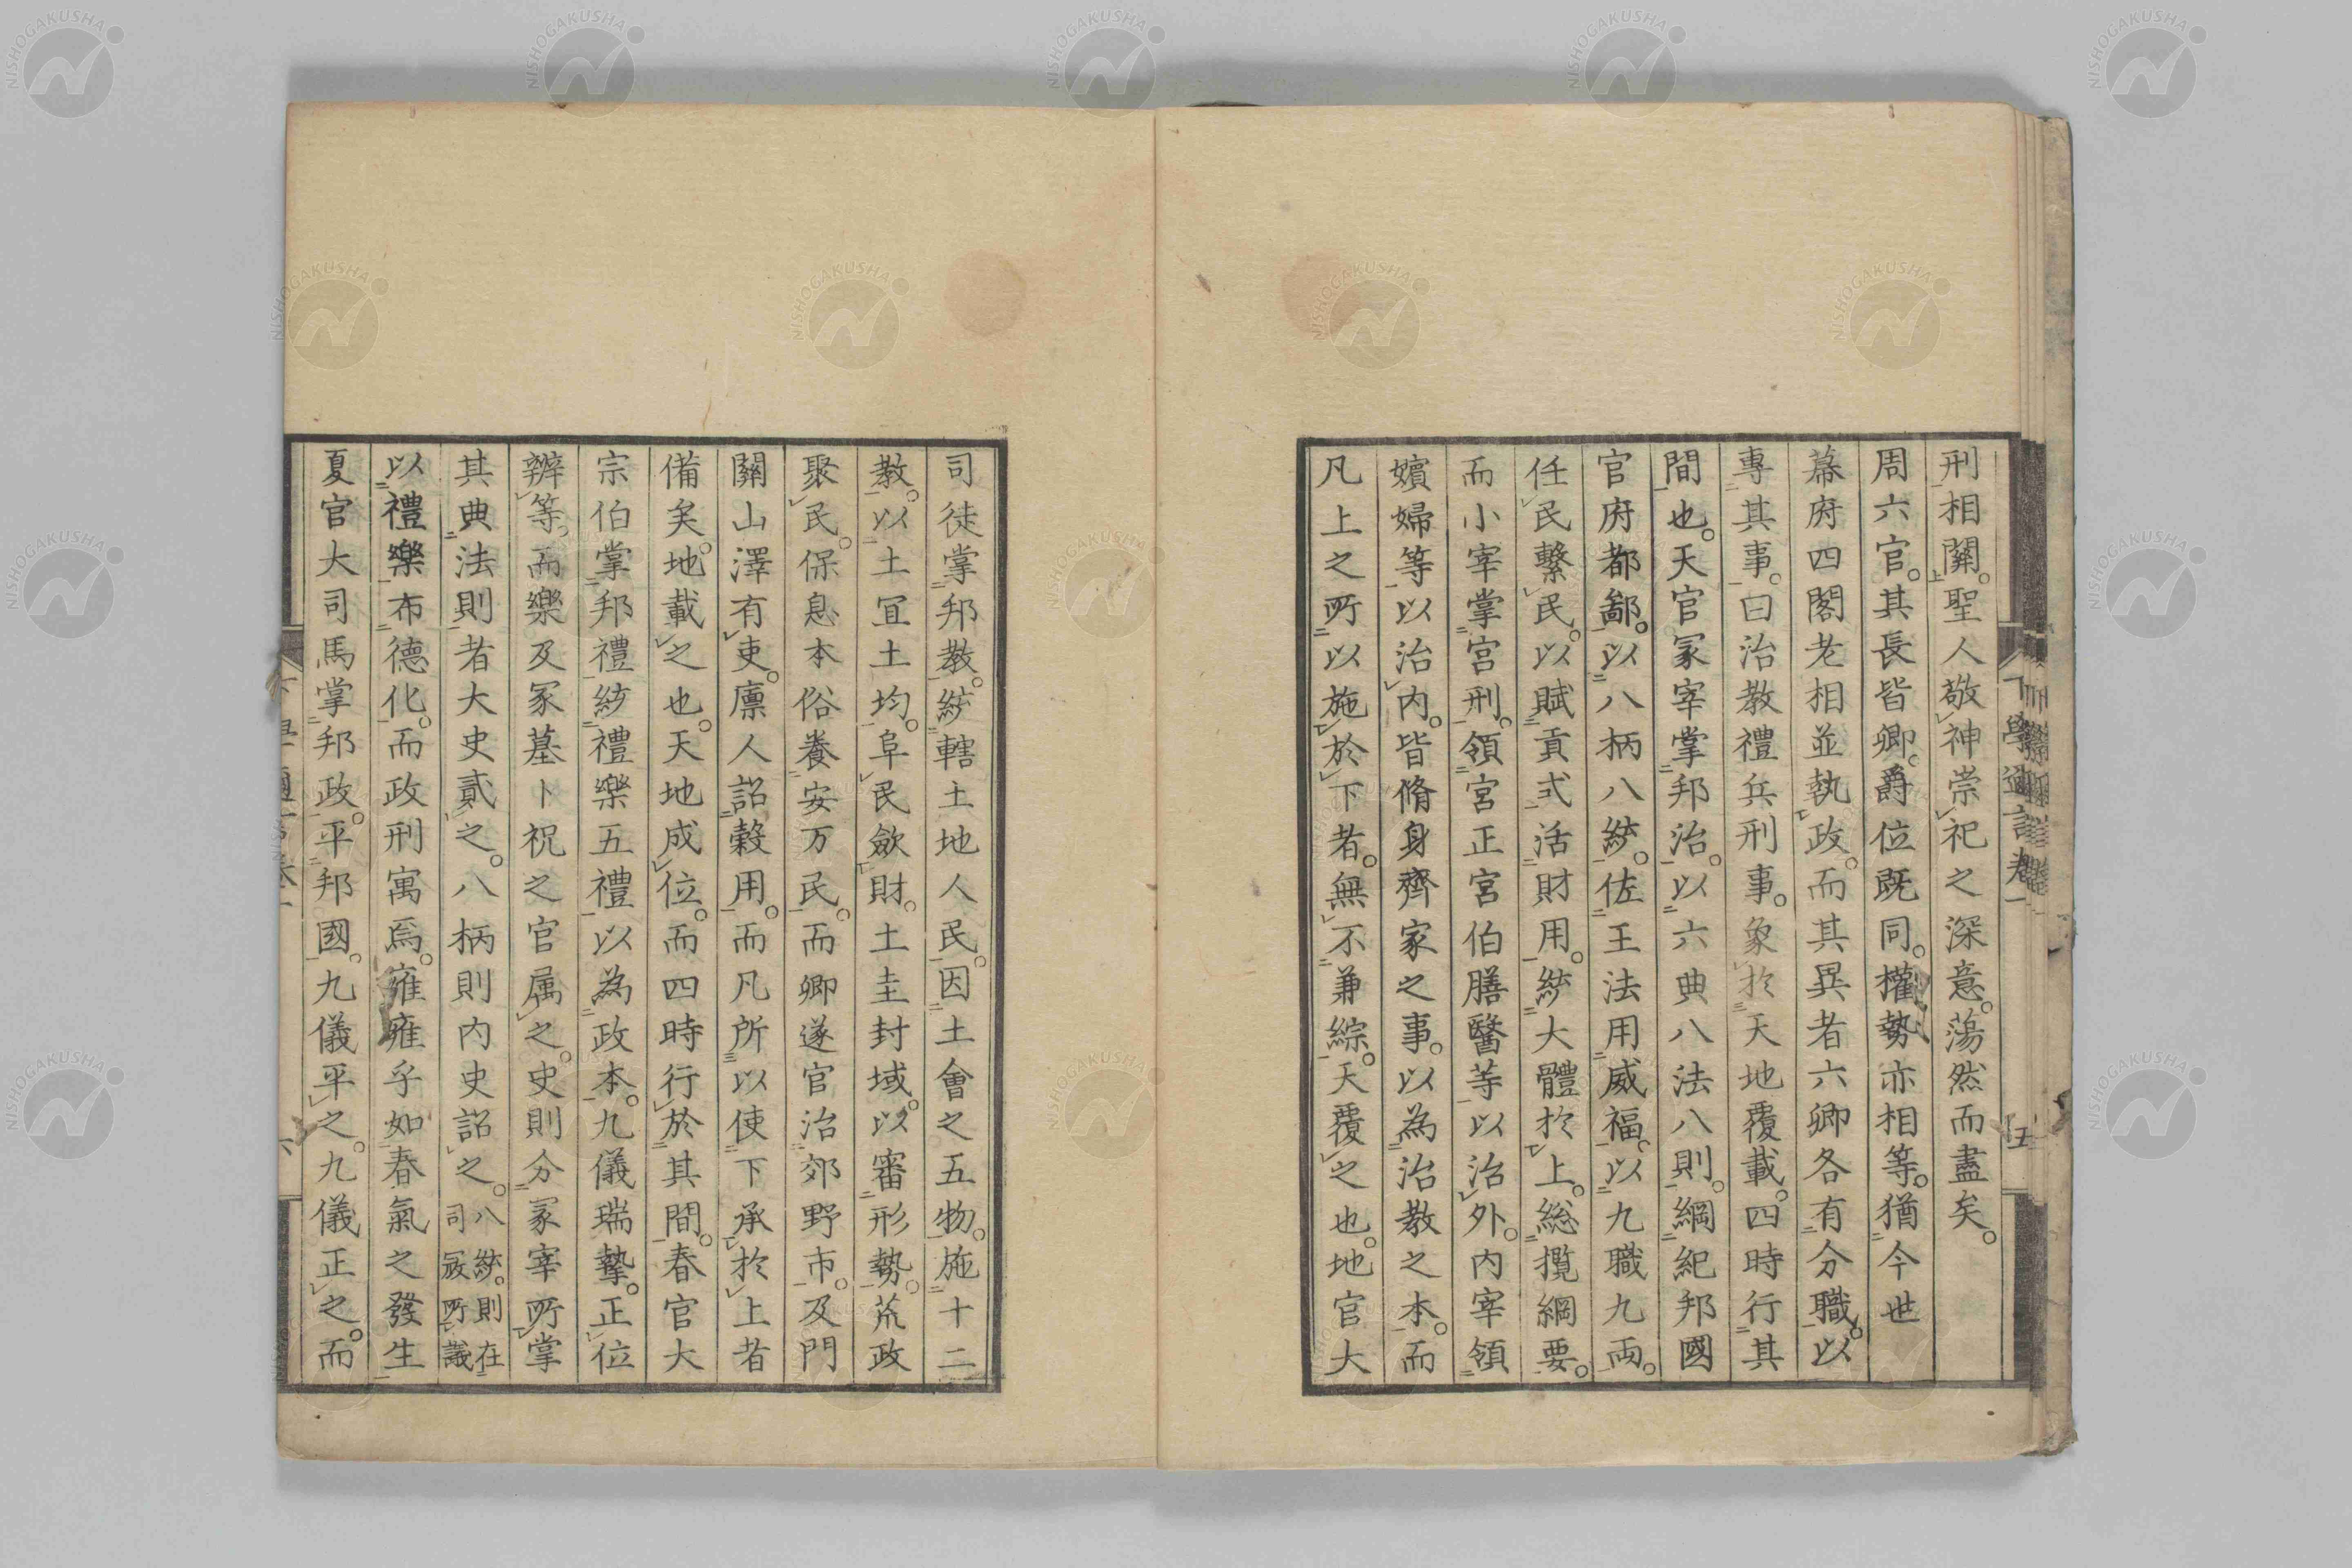 刑相關。聖人敬神崇祀之深意。蕩然而盡矣。
周六官。其長皆卿。爵位既同。權勢亦相等。猶今世
幕府四閣老相並執政。而其異者六卿各有分職。以
專其事。曰治教禮兵刑事。象於天地覆載。四時行其
間也。天官冢宰掌邦治。以六典八法八則。綱紀邦國
官府都鄙。以八柄八統。佐王法用威福。以九職九両。
任民繫民。以賦貢式活財用。統大體於上。総攬綱要。
而小宰掌宮刑。領宮正宮伯膳醫等以治外。内宰領
嬪婦等以治内。皆脩身齊家之事。以為治教之本。而
凡上之所以施於下者。無不兼綜。天覆之也。地官大
司徒掌邦教。統轄土地人民。因土會之五物。施十二
教。以土宜土均。阜民斂財。土圭封域。以審形勢。荒政
聚民。保息本俗養安万民。而卿遂官治郊野市。及門
關山澤有吏。廩人詔穀用。而凡所以使下承於上者
備矣。地載之也。天地成位。而四時行於其間。春官大
宗伯掌邦禮。統禮樂五禮以為政本。九儀瑞摯。正位
辨等。而樂及冢墓卜祝之官属之。史則分冢宰所掌
其典法則者大史貳之。八柄則内史詔之。八統。則在司寇所議
以禮樂布德化。而政刑寓焉。雍雍乎如春氣之發生
夏官大司馬掌邦政。平邦國。九儀平之。九儀正之。而
下學邇言卷一
五
NISHOGAKUSHA